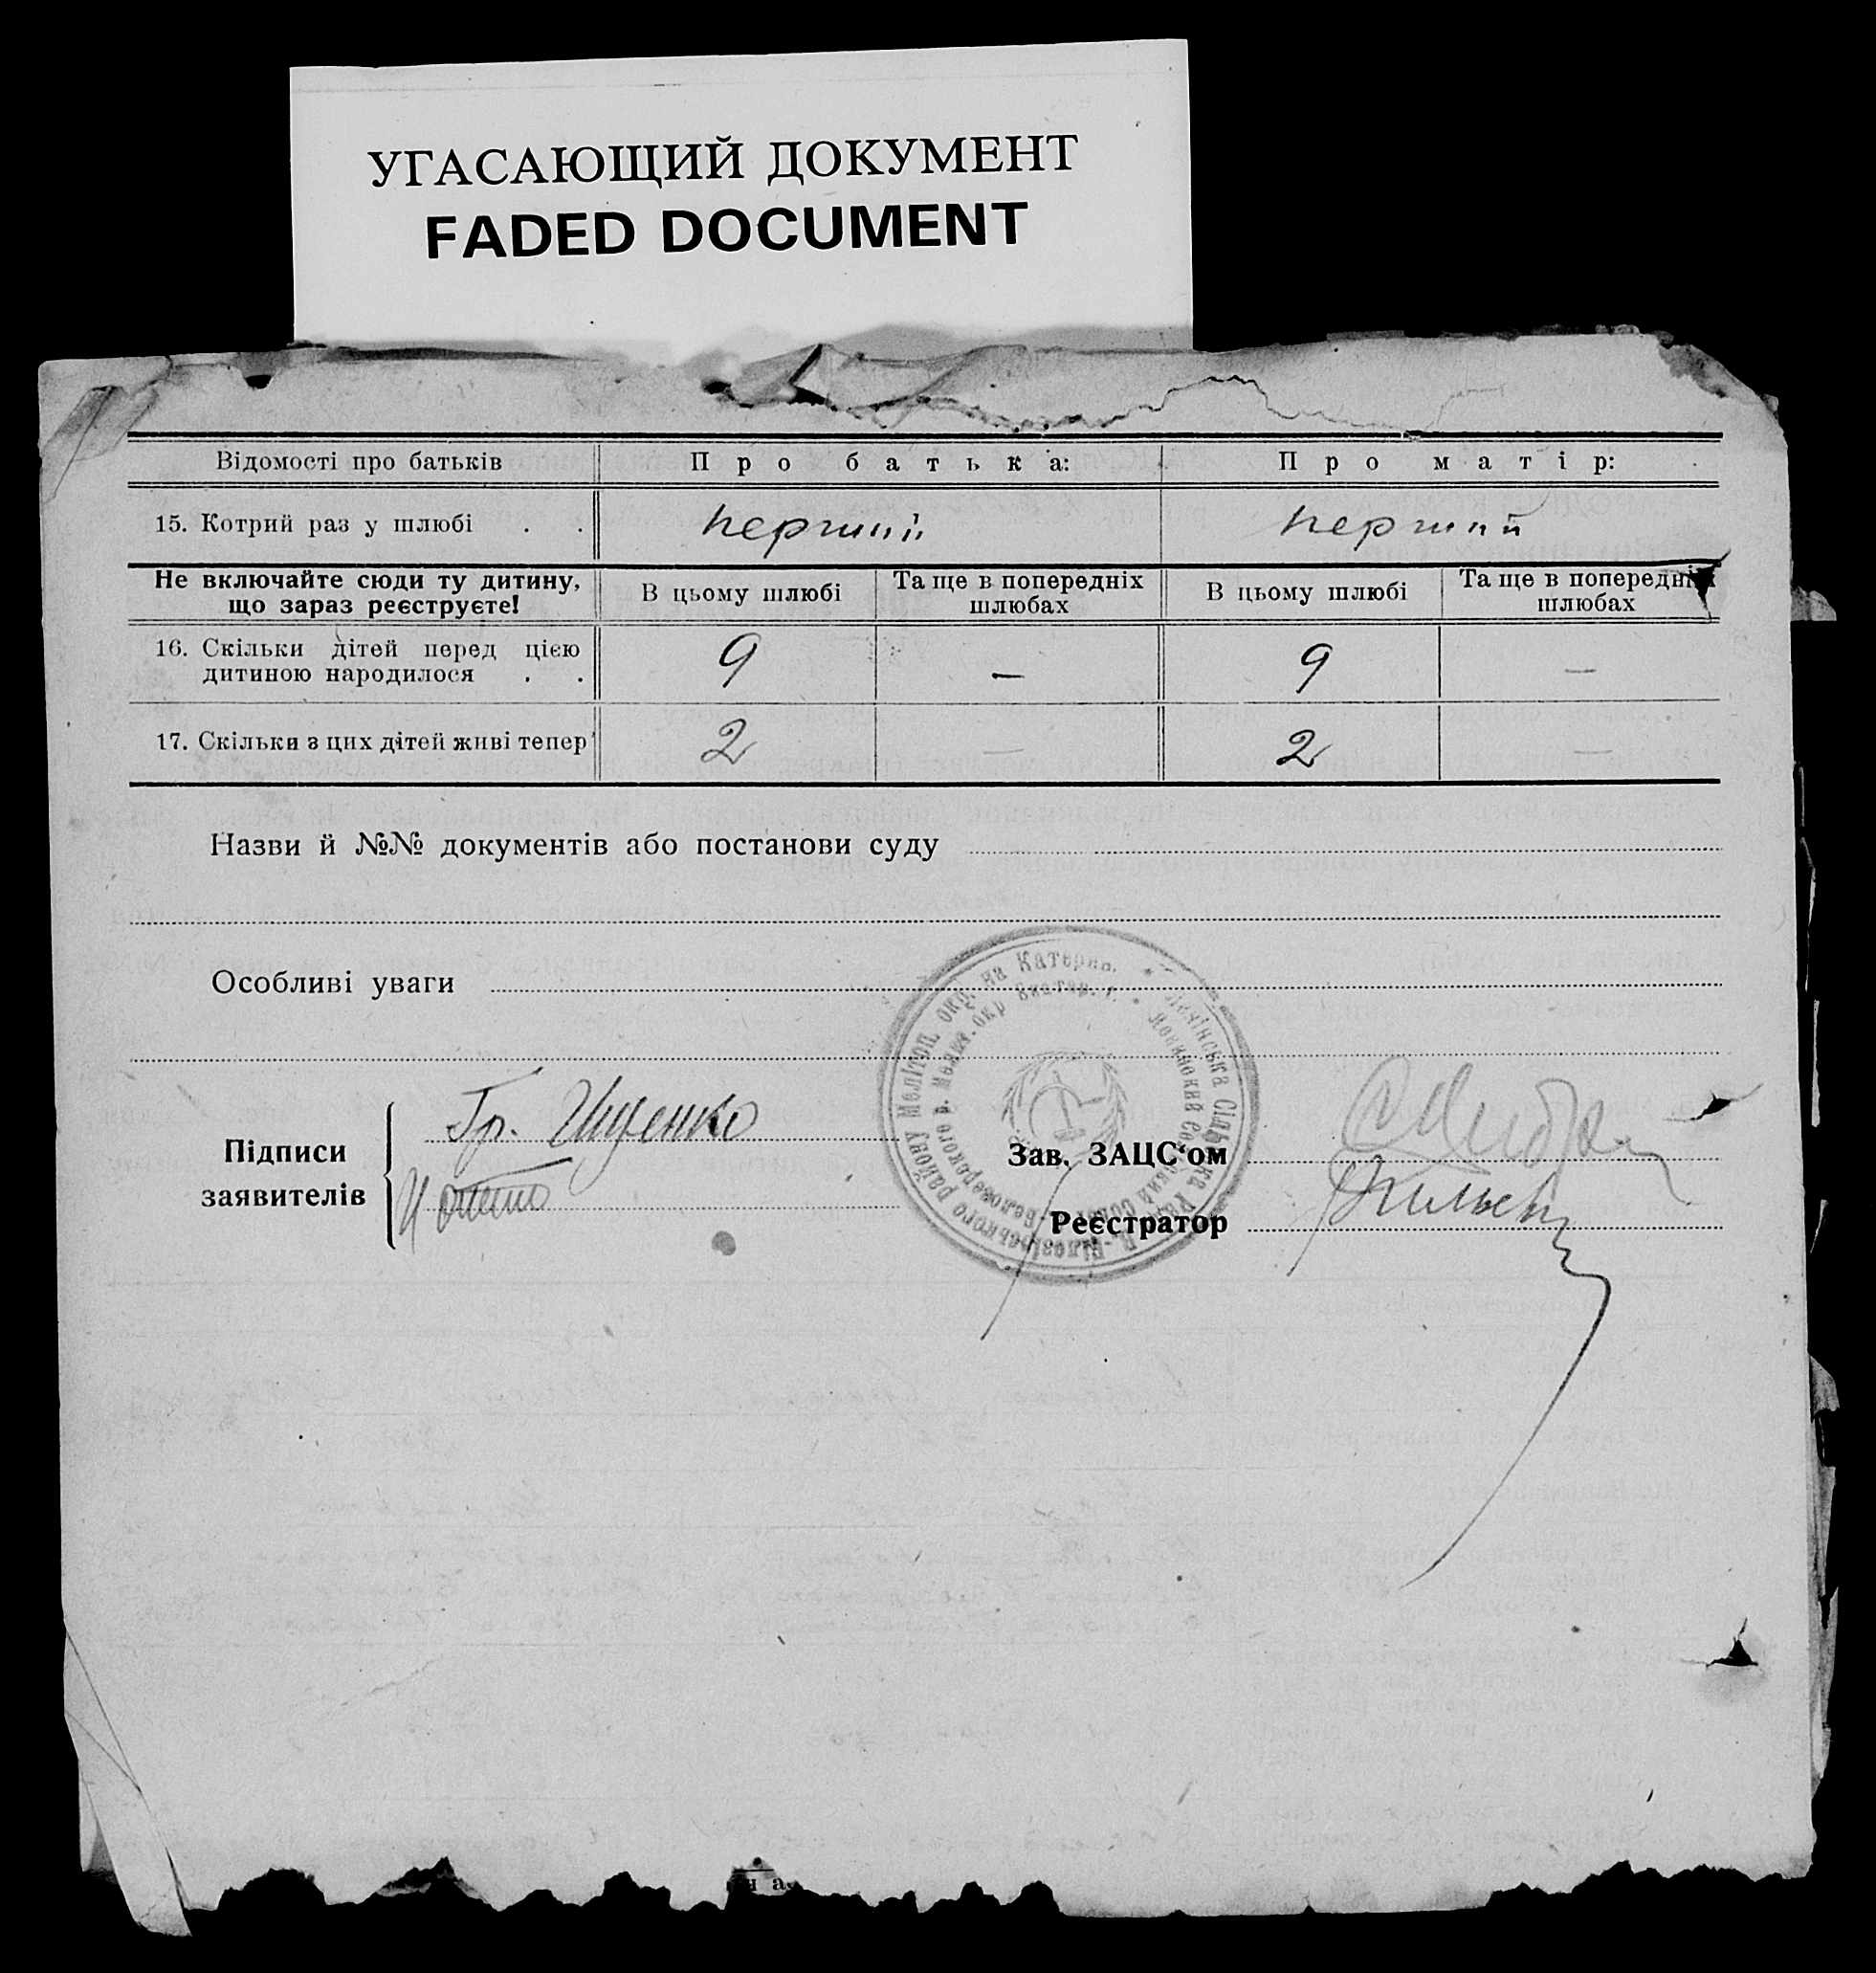 УГАСАЮЩИЙ ДОКУМЕНТ
FADED DOCUMENT
Відомості про батьків Про батька: Про матір:
15. Котрий раз у шлюбі . . перший перший
Не включайте сюди ту дитину, що зараз реєструєте! В цьому шлюбі Та ще в попередніх шлюбах В цьому шлюбі Та ще в попередніх шлюбах
16. Скільки дітей перед цією
дитиною народилося . . 9 — 9 —
17. Скільки з цих дітей живі тепер 2 — 2 —
Назви й №№ документів або постанови суду
Особливі уваги
Підписи заявителів
Гр. Ищенко
Зав. ЗАЦС‘ом
Реєстратор
району Мелітоп. окр. на Катерин.
Сільська Рада